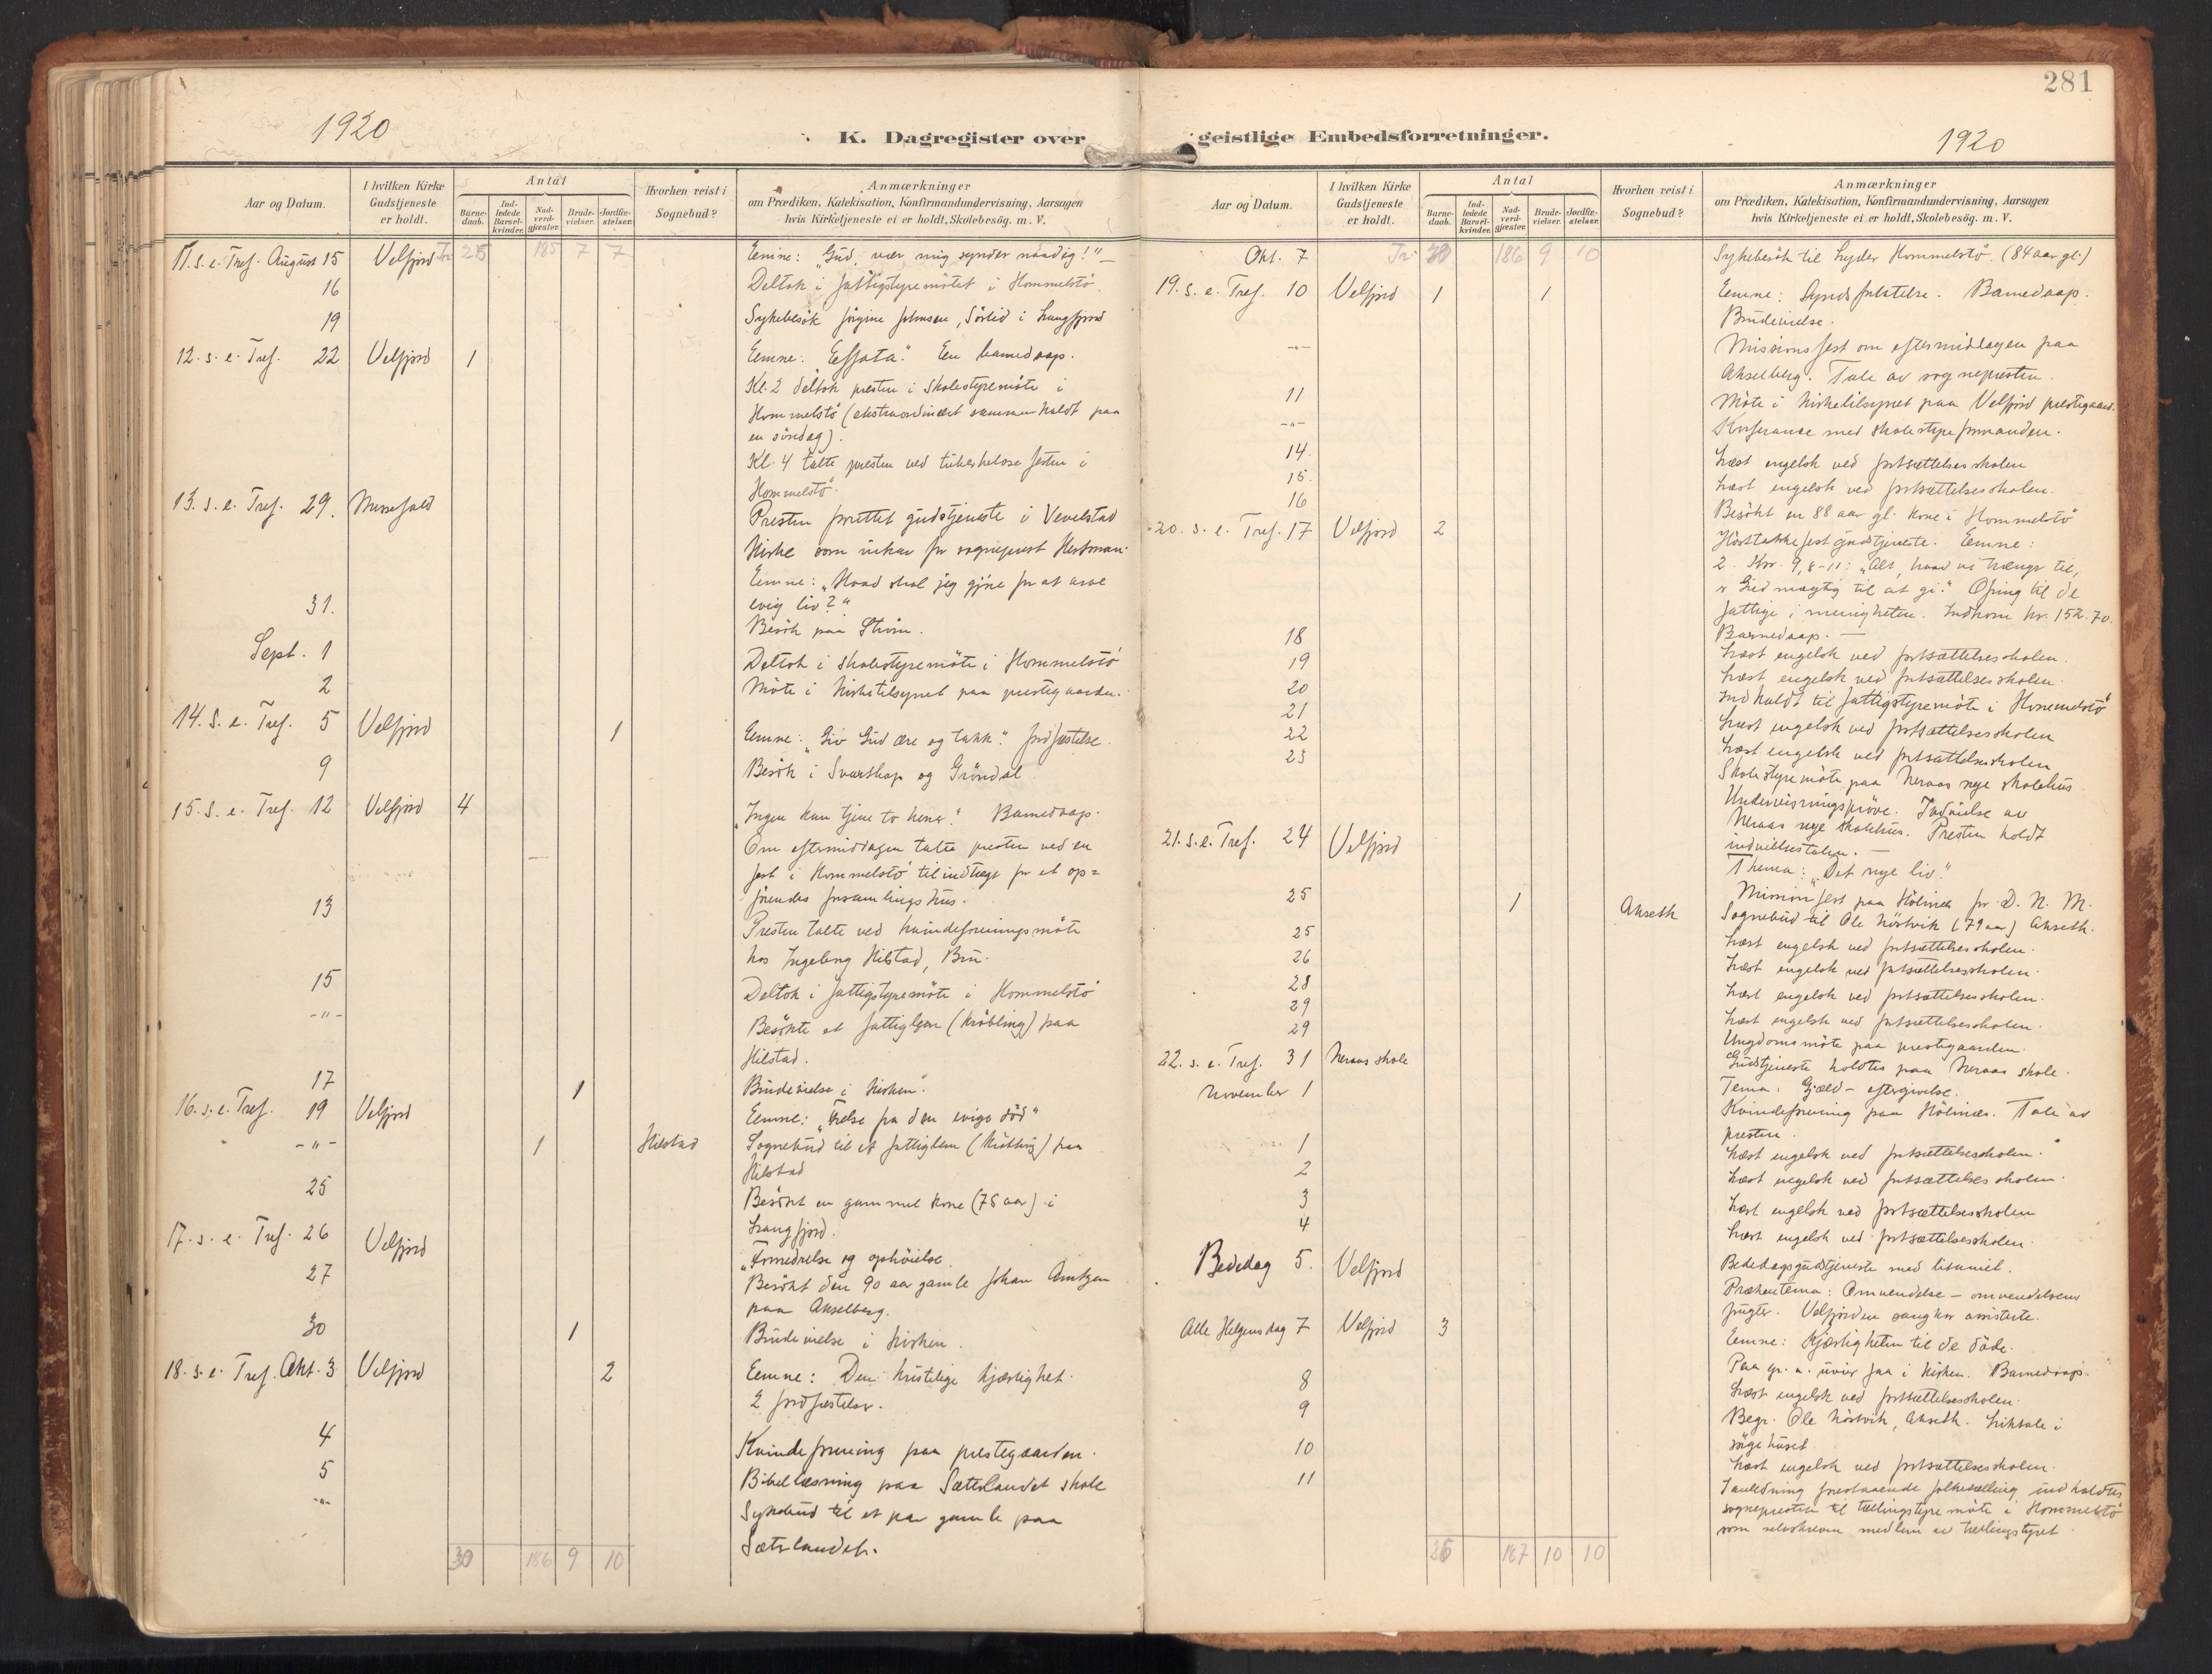 281
1920
K. Dagregister over
geistlige Embedsforretninger.
1920
Aar og Datum.
I hvilken Kirke Gudstjeneste er holdt.
Antal
Barne-daab.
Ind-ledede Barsel-kvinder.
Nad-verd-gjæster.
Brude-vielser.
Jordfæ-stelser.
Hvorhen reist i Sognebud?
Anmærkninger
om Prædiken, Katekisation, Konfirmandundervisning, Aarsagen
hvis Kirketjeneste ei er holdt, Skolebesøg. m. V.
11. s. e. Tref. August 15 Velfjord Tr. 25 185 7 7 Emne: "Gud, vær mig synder naadig!"
16 Deltok i fattigstyremötet i Hommelstö.
19 Sykebesök Jörgine Johnsen, Sörlid i Langfjord
12. s. e. Tref. 22 Velfjord 1 Emne: "Effata." En barnedaap.
Kl. 2 deltok presten i skolestyremöte i
Hommelstö (ekstraordinært sammenkaldt paa
en söndag).
Kl. 4 talte presten ved tuberkulose festen i
Hommelstö.
13. s. e. Tref. 29. Presten forrettet gudstjeneste i Vevelstad
Kirke som vikar for sogneprest
Emne: "Hvad skal jeg gjöre for at arve
evig liv?"
31. Besök paa Ström.
Sept. 1 Deltok i skolestyremöte i Hommelstö
2 Möte i Kirketilsynet paa prestegaarden.
14. S. e. Tref. 5 Velfjord 1 Emne: "Giv Gud ære og takk." Jordfæstelse.
9 Besök i Svartkap og Gröndal
15. S. e. Tref. 12 Velfjord 4 "Ingen kan tjene to herrer." Barnedaap.
Om eftermiddagen talte presten ved en
fest i Hommelstö til indtægt for et op=
förendes forsamlingshus.
13 Presten talte ved kvindeforeningsmöte
hos Ingeborg Hilstad, Bru.
15 Deltok i fattigstyremöte i Hommelstö
-"- Besökte et fattiglem (Kröbling) paa
Hilstad.
17 1 Brudevielse i Kirken.
16. s. e. Tref. 19 Velfjord Emne: "Frelse fra den evige död"
-"- 1 Hilstad Sognebud til et fattiglem (Kröbling) paa
Hilstad
25 Besökt en gammel kone (75 aar) i
Langfjord.
17. s. e. Tref. 26 Velfjord "Fornedrelse og ophöielse.
27 Besökt den 90 aar gamle Johan Arntzen
paa Akselberg.
30 1 Brudevielse i Kirken.
18. s. e. Tref. Okt. 3 Velfjord 2 Emne: Den kristelige kjærlighet.
2 jordfæstelser.
4 Kvindeforening paa prestegaarden.
5 Bibellæsning paa Sæterlandet skole
-"- Sykebud til et par gamle paa
Sæterlandet.
30 186 9 10
Aar og Datum.
I hvilken Kirke Gudstjeneste er holdt.
Antal
Barne-daab.
Ind-ledede Barsel-kvinder.
Nad-verd-gjæster.
Brude-vielser.
Jordfæ-stelser.
Hvorhen reist i Sognebud?
Anmærkninger
om Prædiken, Katekisation, Konfirmandundervisning, Aarsagen
hvis Kirketjeneste ei er holdt, Skolebesøg. m. V.
Okt. 7 Tr. 30 186 9 10 Sykebesök til Lyder Hommelstö. (84 aar gl.)
19. s. e. Tref. 10 Velfjord 1 1 Emne: Synds forlatelse. Barnedaap.
Brudevielse.
-"- Missionsfest om eftermiddagen paa
Akselberg. Tale av sognepresten.
11 Möte i Kirketilsynet paa Velfjord prestegaard.
-"- Konferanse med skolestyreformanden.
14. Læst engelsk ved fortsættelsesskolen
15. Læst engelsk ved fortsættelsesskolen.
16 Besökt en 88 aar gl. kone i Hommelstö
20. s. e. Tref. 17 Velfjord 2 Hösttakkefest gudstjeneste. Emne:
2. Kor. 9, 8-11: "Alt, hvad vi trænger til,
er Gud mægtig til at gi." Ofring til de
fattige i menigheten. Indkom kr. 152.70.
Barnedaap.
18 Læst engelsk ved fortsættelsesskolen.
19 Læst engelsk ved fortsættelsesskolen.
20 Indkaldt til fattigstyremöte i Hommelstö
21 Læst engelsk ved fortsættelsesskolen
22 Læst engelsk ved fortsættelsesskolen
23 Skolestyremöte paa Neraas nye skolehus
Undervisningspröve. Indvielse av
Neraas nye skolehus. Presten holdt
indvielsestalen.
21. s. e. Tref. 24 Velfjord Thema: "Det nye liv."
Missionsfest paa Hölnes for D. N. M.
25 1 Akseth Sognebud til Ole Nöstvik (79 aar) Akseth.
25 Læst engelsk ved fortsættelsesskolen.
26 Læst engelsk ved fortsættelsesskolen.
28 Læst engelsk ved fortsættelsesskolen.
29 Læst engelsk ved fortsættelsesskolen.
29 Ungdomsmöte paa prestegaarden.
22. s. e. Tref. 31 Neraas skole Gudstjeneste holdtes paa Neraas skole.
Tema: Gjæld-eftergivelse.
November 1 Kvindeforening paa Hölnes. Tale av
presten.
1 Læst engelsk ved fortsættelsesskolen.
2 Læst engelsk ved fortsættelsesskolen.
3 Læst engelsk ved fortsættelsesskolen
4 Læst engelsk ved fortsættelsesskolen.
Bededag 5. Velfjord Bededagsgudstjeneste med litaniet.
Præketema: Omvendelse - omvendelsens
frugter. Velfjorden sangkor assisterte.
Alle Helgensdag 7 Velfjord 3 Emne: Kjærligheten til de döde.
Paa gr. a. uveir faa i Kirken. Barnedaap.
8 Læst engelsk ved fortsættelsesskolen.
9 Begr. Ole Nöstvik, Akseth. Liktale i
sörgehuset
10 Læst engelsk ved fortsættelsesskolen.
11 I anledning forestaaende folketælling indkaldtes
sognepresten til tællingstyremöte i Hommelstö
som selvskreven medlem av tællingstyret.
187 10 10